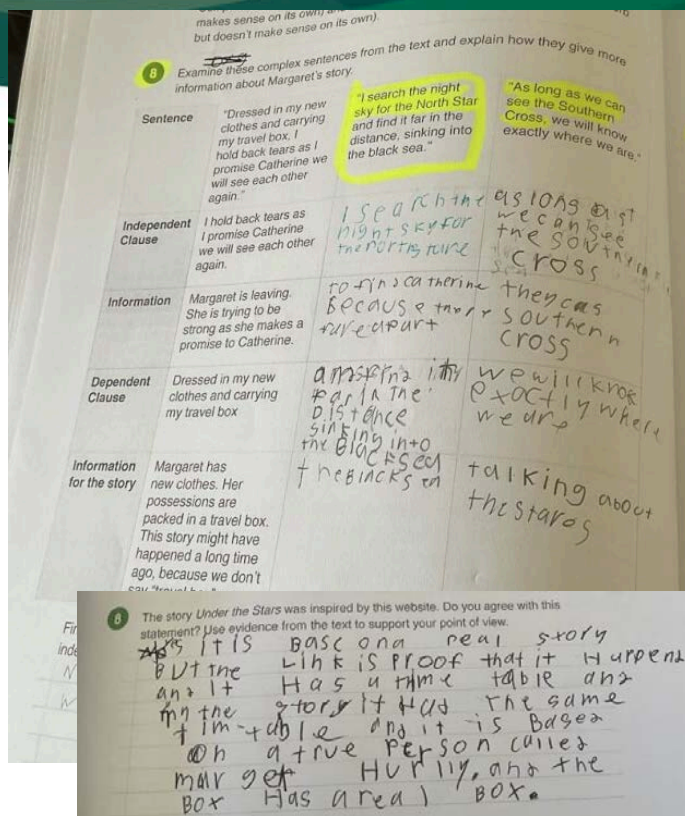 makes sense on its own)
but doesn't make sense on its own).
8 Examine these complex sentences from the text and explain how they give more
information about Margaret's story.
Sentence
"Dressed in my new
clothes and carrying
my travel box, I
hold back tears as I
promise Catherine we
will see each other
again."
"I search the night
sky for the North Star
and find it far in the
distance, sinking into
the black sea."
"As long as we can
see the Southern
Cross, we will know
exactly where we are."
Independent
Clause
I hold back tears as
I promise Catherine
we will see each other
again.
I search the
night sky for
the north
as long as
we can see
the southern
cross
Information
Margaret is leaving.
She is trying to be
strong as she makes a
promise to Catherine.
to find catherine
Because they
are apart
they
southern
cross
Dependent
Clause
Dressed in my new
clothes and carrying
my travel box
in the
Distance
sinking into
the Black sea
we will
exactly where
we are
Information
for the story
Margaret has
new clothes. Her
possessions are
packed in a travel box.
This story might have
happened a long time
ago, because we don't
the Black
talking about
the stares
8 The story Under the Stars was inspired by this website. Do you agree with this
statement? Use evidence from the text to support your point of view.
it is Base on a real story
But the Link is proof that it Happend
and it Has a time table and
in the story it Has the same
tim-table and it is Based
on a true Person called
marget Hurlly, and the
Box Has a real Box.